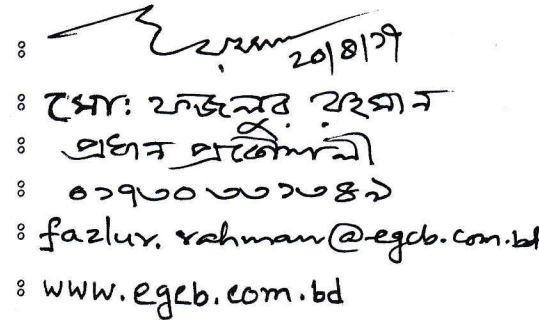 : ২০|৪|১৭
: মো: ফজলুর রহমান
: প্রধান প্রকৌশলী
: ০১৭৩০৩৩১৩৪৯
: fazlur.rahman@egcb.com.bd
: www.egcb.com.bd